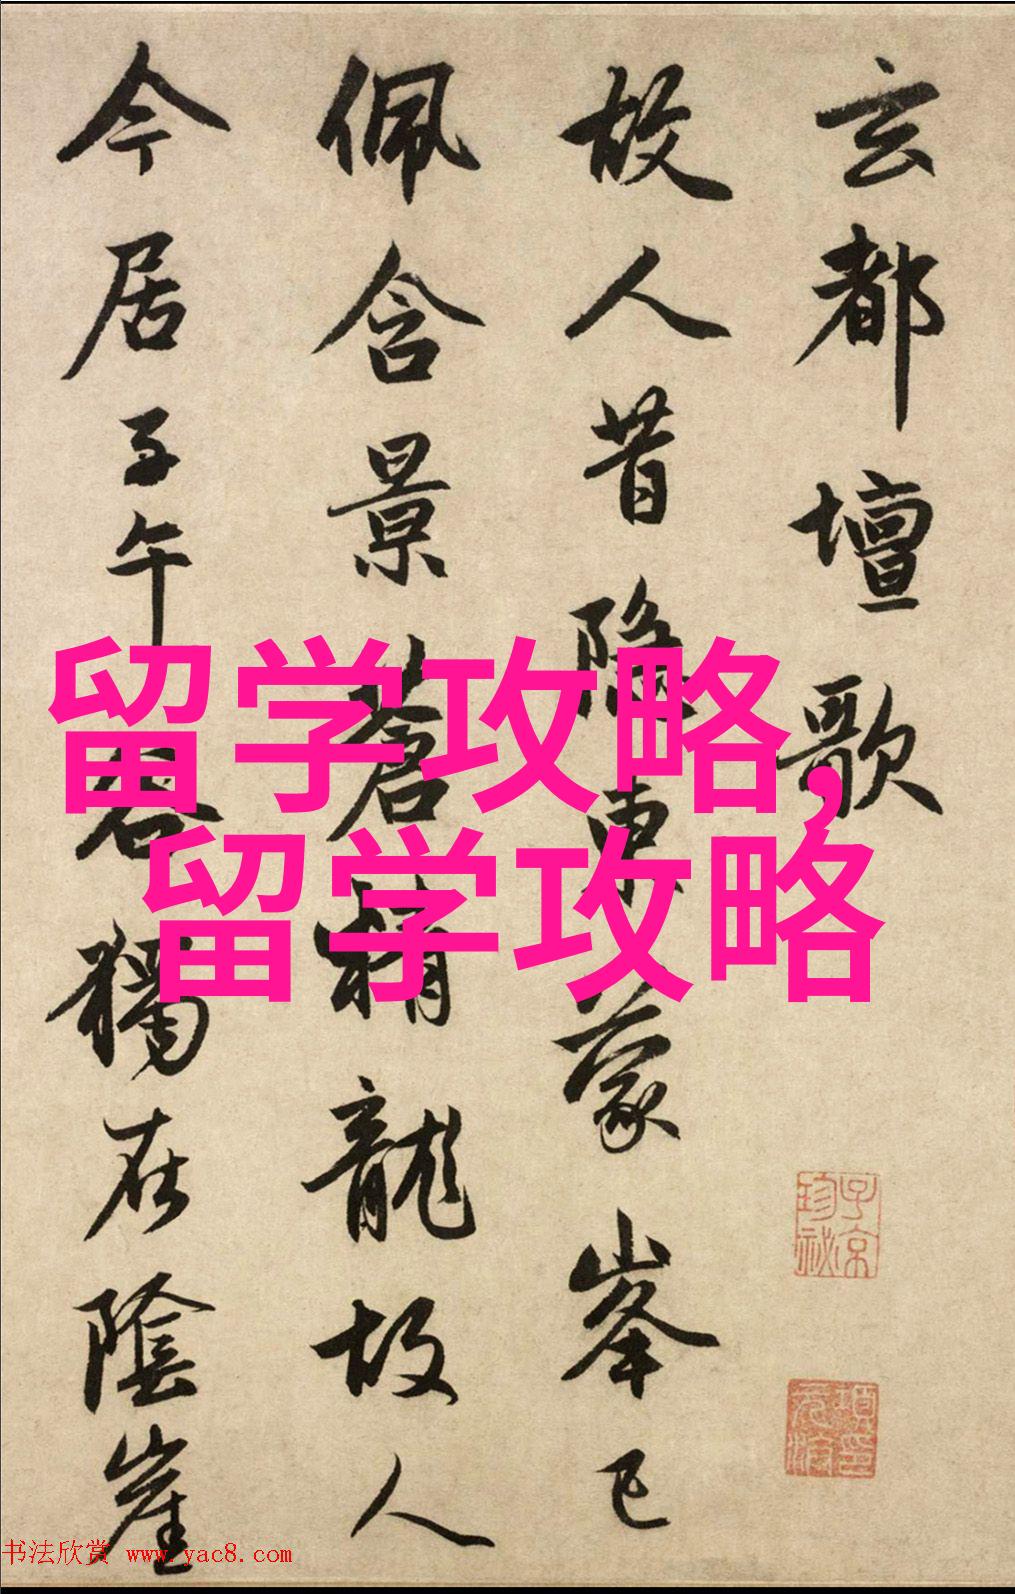 玄都壇歌
故人昔隱東蒙峯已
佩含景蒼精龍故人
今居子午谷獨在陰崖
留学攻略,
留学攻略
子京珍祕
項元汴印
书法欣赏 www.yac8.com